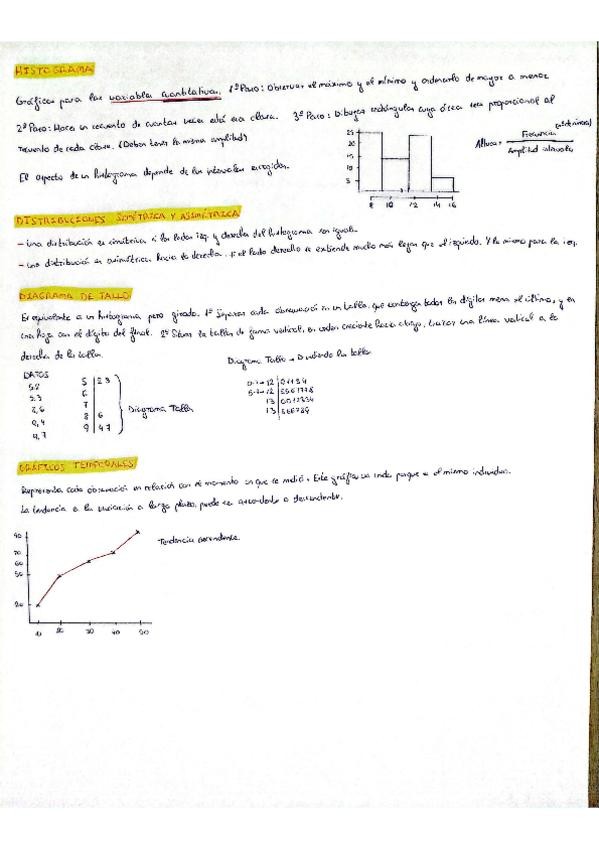 HISTOGRAMA
Gráficos para las variables cuantitativas. 1º Paso: Observar el máximo y el mínimo y ordenarlo de mayor a menor
2º Paso: Hacer un recuento de cuantas veces está esa clase. 3º Paso: Dibujar rectángulos cuya área sea proporcional al
recuento de cada clase. (Deben tener la misma amplitud)
Altura = Frecuencia / Amplitud intervalo
El aspecto de un histograma depende de los intervalos escogidos.
25
20
15
10
5
8 10 12 14 16
DISTRIBUCIONES SIMÉTRICA Y ASIMÉTRICA
- Una distribución es simétrica si los lados izq. y derecho del histograma son iguales.
- una distribución es asimétrica hacia la derecha si el lado derecho se extiende mucho más lejos que el izquierdo. Y lo mismo para la izq.
DIAGRAMA DE TALLO
Es equivalente a un histograma pero girado. 1º Separar cada observación en un tallo, que contenga todos los dígitos menos el último, y en
una hoja con el dígito del final. 2º Situar los tallos de forma vertical, en orden creciente hacia abajo, trazar una línea vertical a la
derecha de los tallos.
Diagrama Tallo → Dividiendo los tallos
DATOS
5,2
5,3
8,6
9,4
9,7
5 | 2 3
6 |
7 |
8 | 6
9 | 4 7
Diagrama Tallo
0-4→12 | 01134
5-9→12 | 5561778
13 | 0012334
13 | 566789
GRÁFICOS TEMPORALES
Representa cada observación en relación con el momento en que se midió. Este gráfico va unido porque es el mismo individuo.
La tendencia es la variación a largo plazo, puede ser ascendente o descendente.
Tendencia ascendente.
90
70
60
50
20
10 20 30 40 50